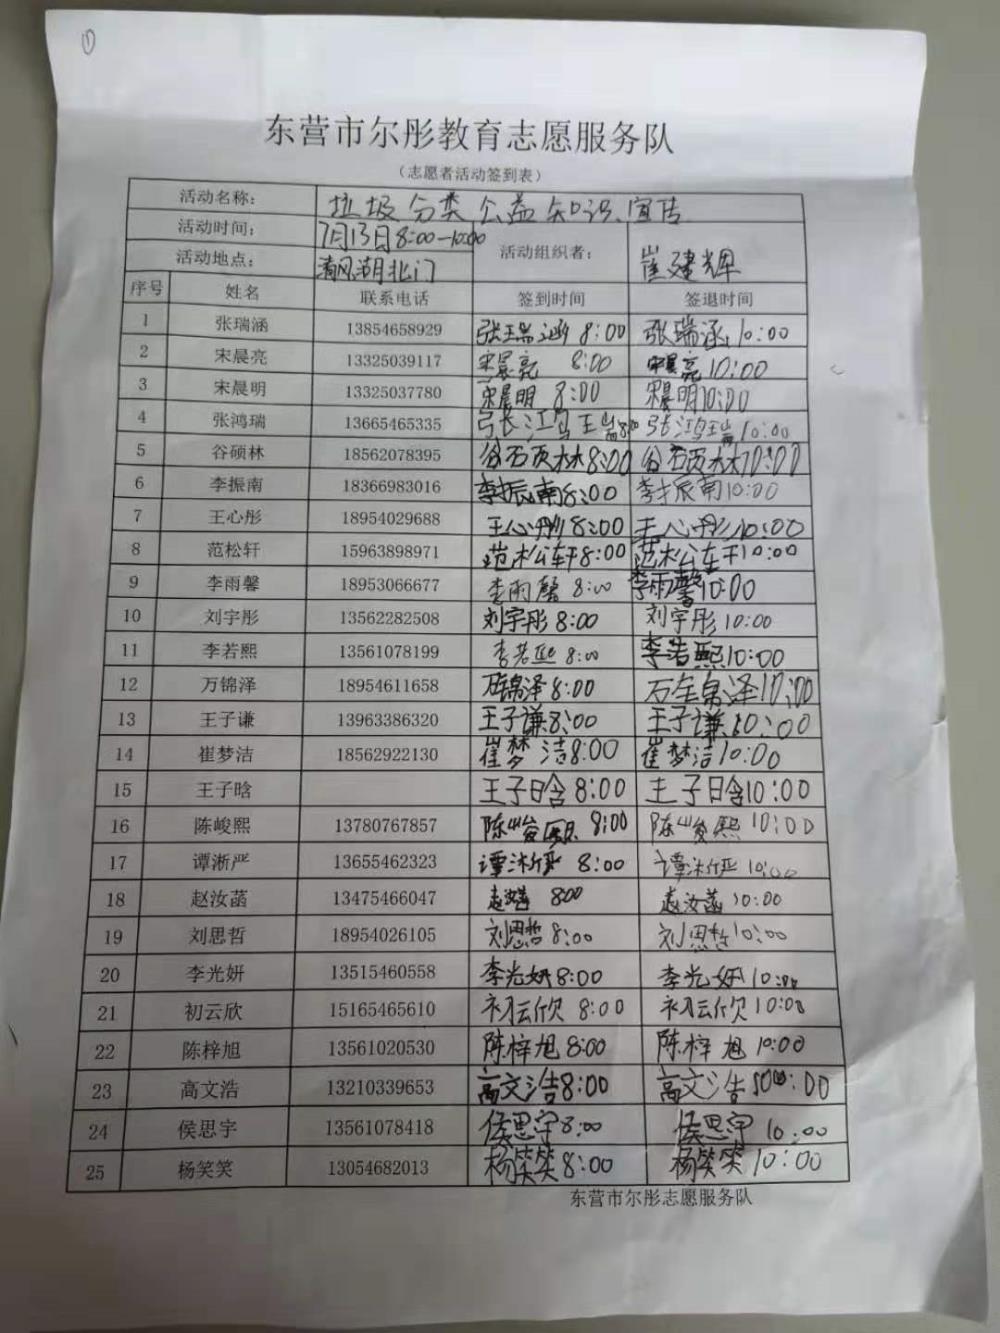 ①
东营市尔彤教育志愿服务队
（志愿者活动签到表）
活动名称： 垃圾分类公益知识宣传
活动时间： 7月13日8:00-10:00 活动组织者： 崔建辉
活动地点： 清风湖北门
序号 姓名 联系电话 签到时间 签退时间
1 张瑞涵 13854658929 张瑞涵 8:00 张瑞涵 10:00
2 宋晨亮 13325039117 宋晨亮 8:00 宋晨亮 10:00
3 宋晨明 13325037780 宋晨明 8:00 宋晨明 10:00
4 张鸿瑞 13665465335 张鸿瑞 8:00 张鸿瑞 10:00
5 谷硕林 18562078395 谷硕林 8:00 谷硕林 10:00
6 李振南 18366983016 李振南 8:00 李振南 10:00
7 王心彤 18954029688 王心彤 8:00 王心彤 10:00
8 范松轩 15963898971 范松轩 8:00 范松轩 10:00
9 李雨馨 18953066677 李雨馨 8:00 李雨馨 10:00
10 刘宇彤 13562282508 刘宇彤 8:00 刘宇彤 10:00
11 李若熙 13561078199 李若熙 8:00 李若熙 10:00
12 万锦泽 18954611658 万锦泽 8:00 万锦泽 10:00
13 王子谦 13963386320 王子谦 8:00 王子谦 10:00
14 崔梦洁 18562922130 崔梦洁 8:00 崔梦洁 10:00
15 王子晗 王子晗 8:00 王子晗 10:00
16 陈峻熙 13780767857 陈峻熙 8:00 陈峻熙 10:00
17 谭淅严 13655462323 谭淅严 8:00 谭淅严 10:00
18 赵汝菡 13475466047 赵汝菡 8:00 赵汝菡 10:00
19 刘思哲 18954026105 刘思哲 8:00 刘思哲 10:00
20 李光妍 13515460558 李光妍 8:00 李光妍 10:00
21 初云欣 15165465610 初云欣 8:00 初云欣 10:00
22 陈梓旭 13561020530 陈梓旭 8:00 陈梓旭 10:00
23 高文浩 13210339653 高文浩 8:00 高文浩 :00
24 侯思宇 13561078418 侯思宇 8:00 侯思宇 10:00
25 杨笑笑 13054682013 杨笑笑 8:00 杨笑笑 10:00
东营市尔彤志愿服务队